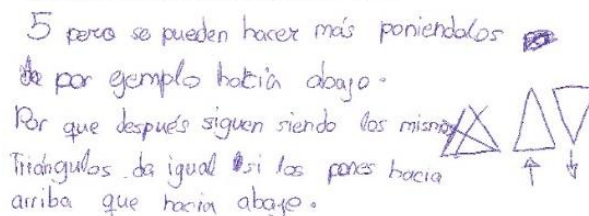 5 pero se pueden hacer más poniendolos
por ejemplo hacia abajo.
Por que después siguen siendo los mismos
Triángulos da igual si los pones hacia
arriba que hacia abajo.